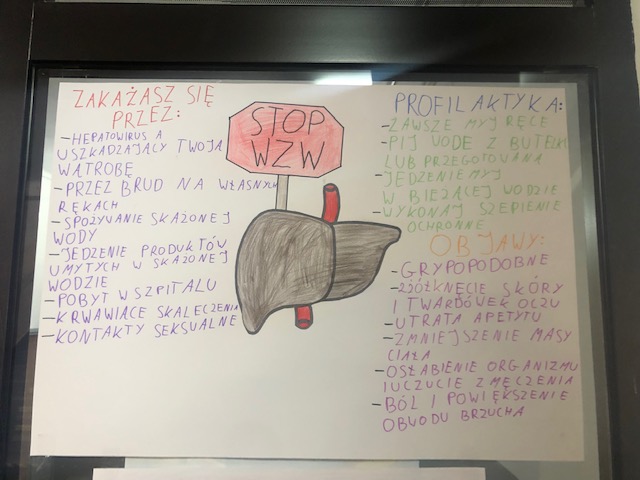 ZAKAŻASZ SIĘ
PRZEZ:
-HEPATOWIRUS A
USZKADZAJĄCY TWOJĄ
WĄTROBĘ
-PRZEZ BRUD NA WŁASNYCH
RĘKACH
-SPOŻYWANIE SKAŻONEJ
WODY
-JEDZENIE PRODUKTÓW
UMYTYCH W SKAŻONEJ
WODZIE
-POBYT W SZPITALU
-KRWAWIĄCE SKALECZENIA
-KONTAKTY SEKSUALNE
STOP
WZW
PROFILAKTYKA:
-ZAWSZE MYJ RĘCE
-PIJ WODE Z BUTELKI
LUB PRZEGOTOWANĄ
-JEDZENIE MYJ
W BIEŻĄCEJ WODZIE
-WYKONAJ SZEPIENIE
OCHRONNE
OBJAWY:
-GRYPOPODOBNE
-ZŻÓŁKNIĘCIE SKÓRY
I TWARDÓWEK OCZU
-UTRATA APETYTU
-ZMNIEJSZENIE MASY
CIAŁA
-OSŁABIENIE ORGANIZMU
I UCZUCIE ZMĘCZENIA
-BÓL I POWIĘKSZENIE
OBWODU BRZUCHA